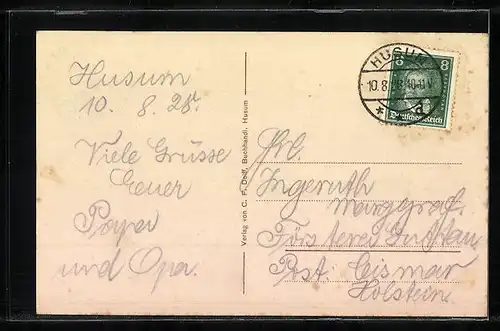 Husum
10. 8. 28.
Viele Grüsse
Euer
Papa
und Opa.
Verlag von C. F. Delff, Buchhandl. Husum
HUSUM
10.8.28.10-11V.
8 8
Deutsches Reich
Frl.
Ingeruth
Marggraf
Försterei
Post: Cismar
Holstein.